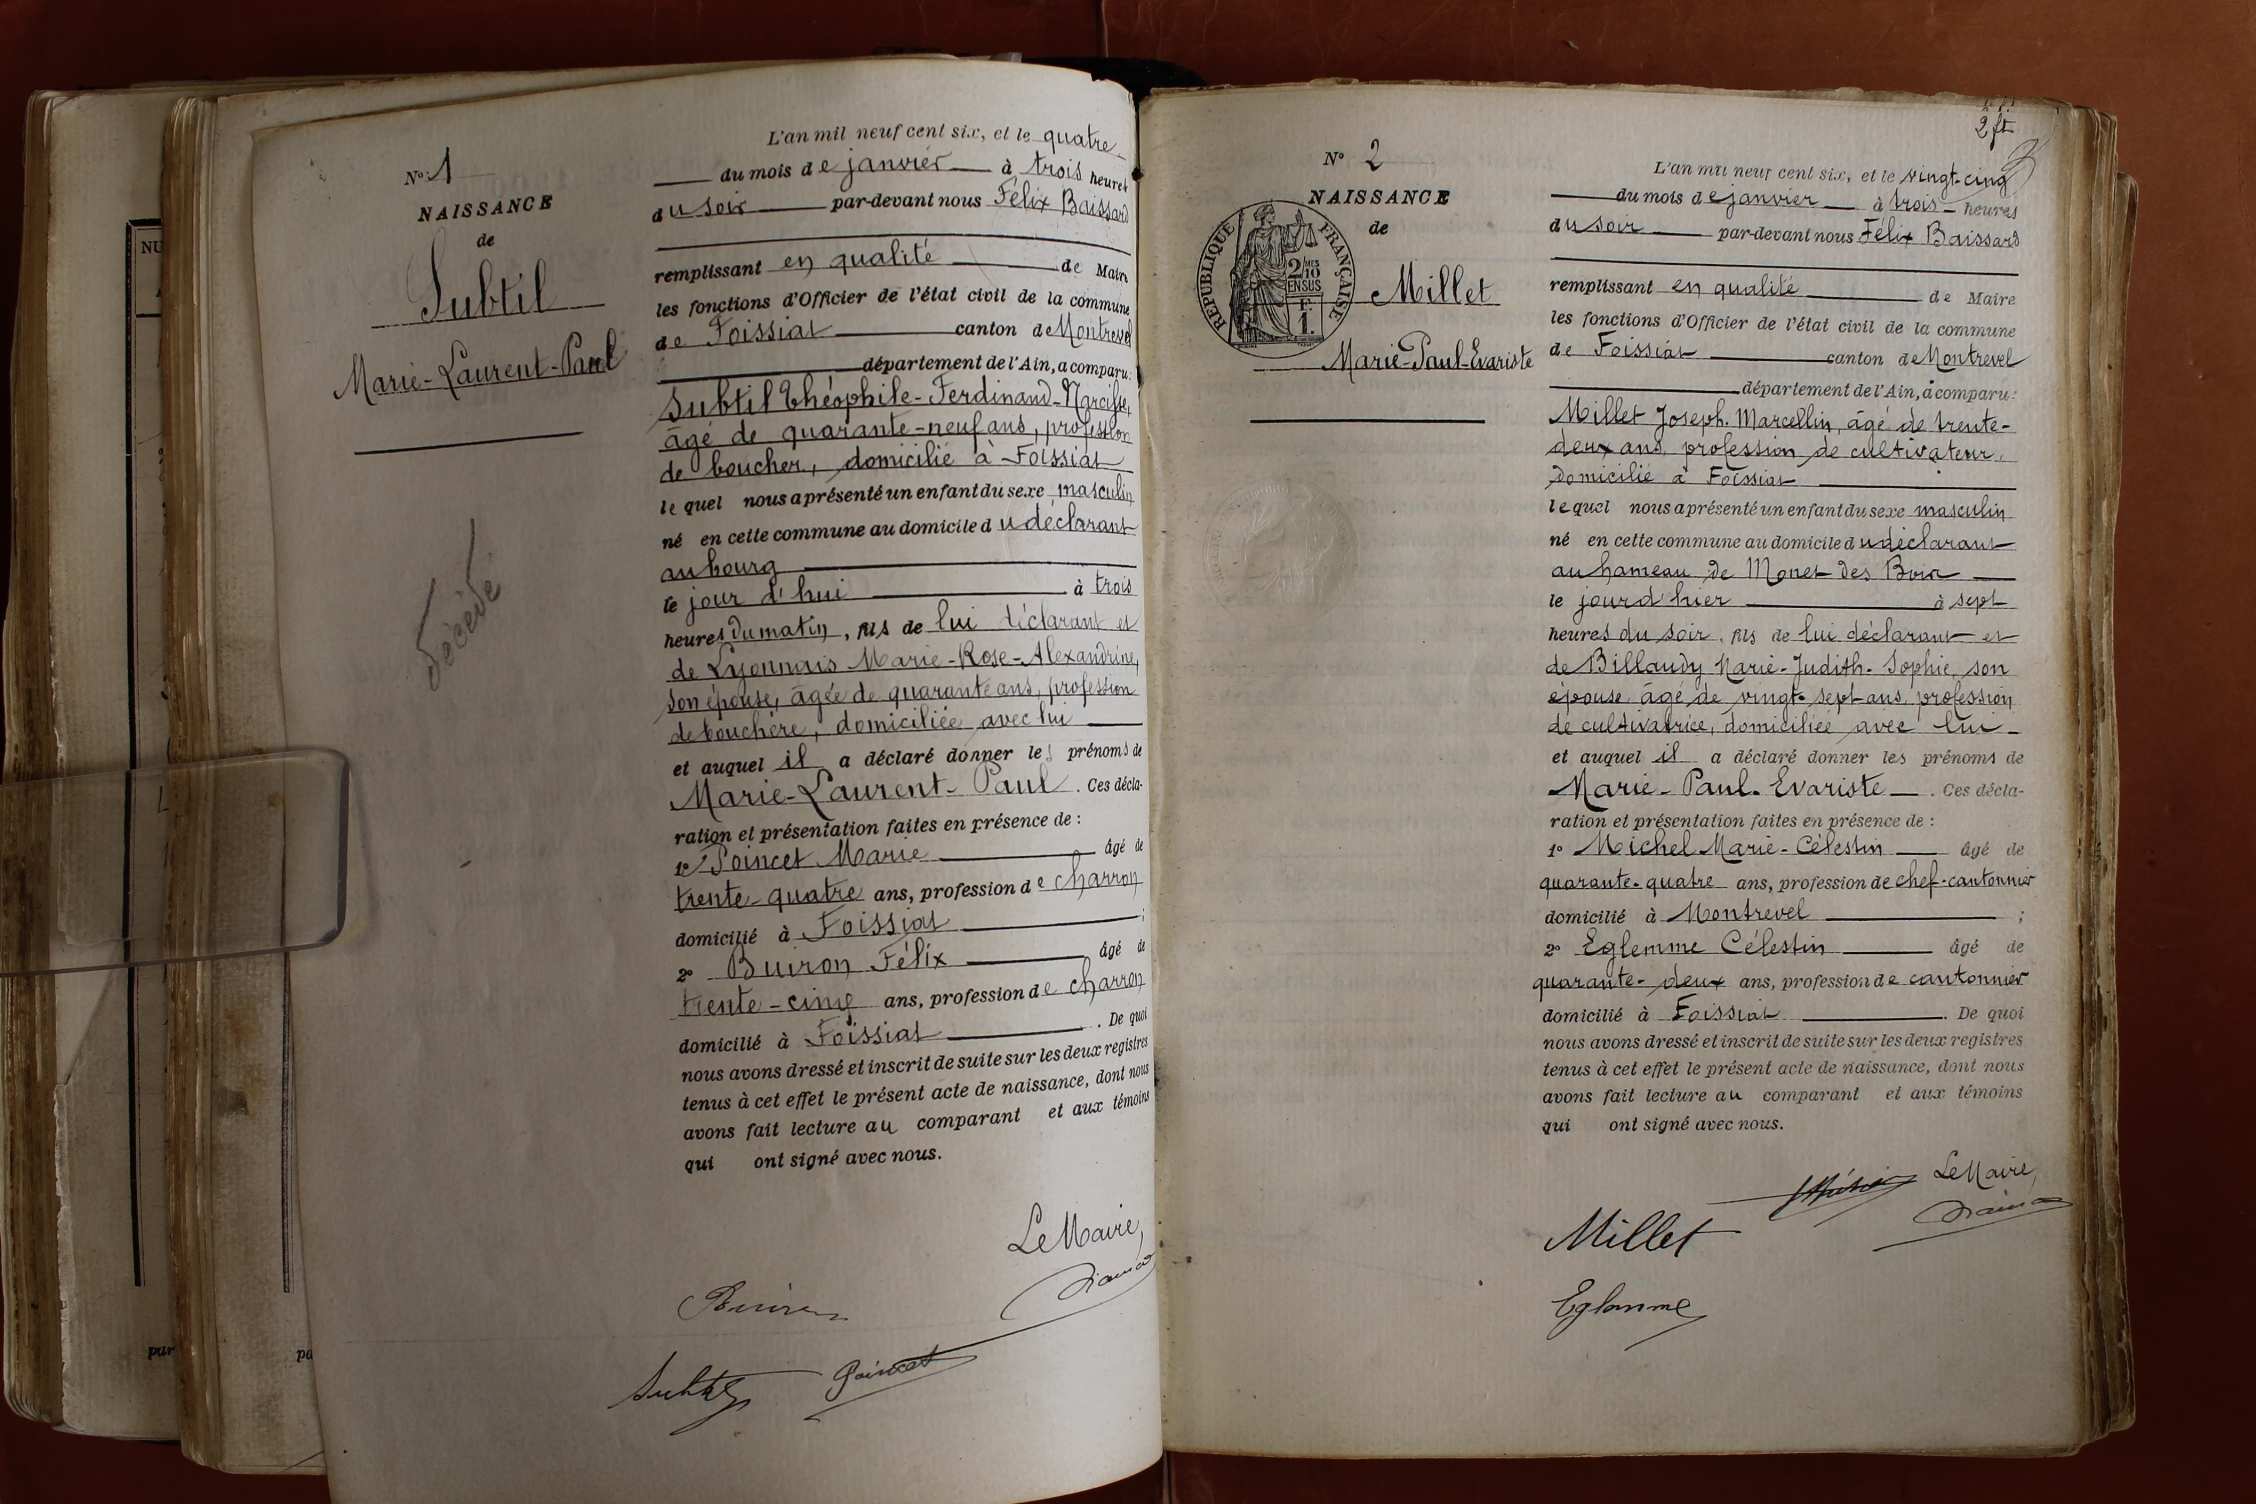 N° 1
NAISSANCE
de
Subtil
Marie-Laurent-Paul
décédé
L'an mil neuf cent six, et le quatre
du mois de janvier à trois heures
du soir par-devant nous Félix Baissard
remplissant en qualité de Maire
les fonctions d'Officier de l'état civil de la commune
de Foissiat canton de Montrevel
département de l'Ain, a comparu:
Subtil Théophile-Ferdinand-Narcisse,
âgé de quarante-neuf ans, profession
de boucher, domicilié à Foissiat
lequel nous a présenté un enfant du sexe masculin
né en cette commune au domicile du déclarant
au bourg
le jour d'hui à trois
heures du matin, fils de lui déclarant et
de Lyonnais Marie-Rose-Alexandrine,
son épouse, âgée de quarante ans, profession
de bouchère, domiciliée avec lui
et auquel il a déclaré donner les prénoms de
Marie-Laurent-Paul. Ces décla-
ration et présentation faites en présence de :
1° Poincet Marie âgé de
trente-quatre ans, profession de charron
domicilié à Foissiat ;
2° Buiron Félix âgé de
trente-cinq ans, profession de charron
domicilié à Foissiat. De quoi
nous avons dressé et inscrit de suite sur les deux registres
tenus à cet effet le présent acte de naissance, dont nous
avons fait lecture au comparant et aux témoins
qui ont signé avec nous.
Le Maire,
Buiron
Subtil Poincet
NU
par
pa
2 ft
N° 2
NAISSANCE
de
RÉPUBLIQUE FRANÇAISE
2/10 MES
EN SUS
F.
1.
Millet
Marie-Paul-Evariste
L'an mil neuf cent six, et le vingt-cinq
du mois de janvier à trois heures
du soir par-devant nous Félix Baissard
remplissant en qualité de Maire
les fonctions d'Officier de l'état civil de la commune
de Foissiat canton de Montrevel
département de l'Ain, a comparu:
Millet Joseph-Marcellin, âgé de trente-
deux ans, profession de cultivateur,
domicilié à Foissiat
lequel nous a présenté un enfant du sexe masculin
né en cette commune au domicile du déclarant
au hameau de Monet des Bois
le jour d'hier à sept
heures du soir, fils de lui déclarant et
de Billaudy Marie-Judith-Sophie, son
épouse, âgé de vingt-sept ans, profession
de cultivatrice, domiciliée avec lui
et auquel il a déclaré donner les prénoms de
Marie-Paul-Evariste. Ces décla-
ration et présentation faites en présence de :
1° Michel Marie-Célestin âgé de
quarante-quatre ans, profession de chef-cantonnier
domicilié à Montrevel ;
2° Eglemme Célestin âgé de
quarante-deux ans, profession de cantonnier
domicilié à Foissiat. De quoi
nous avons dressé et inscrit de suite sur les deux registres
tenus à cet effet le présent acte de naissance, dont nous
avons fait lecture au comparant et aux témoins
qui ont signé avec nous.
Le Maire,
Millet
Eglemme